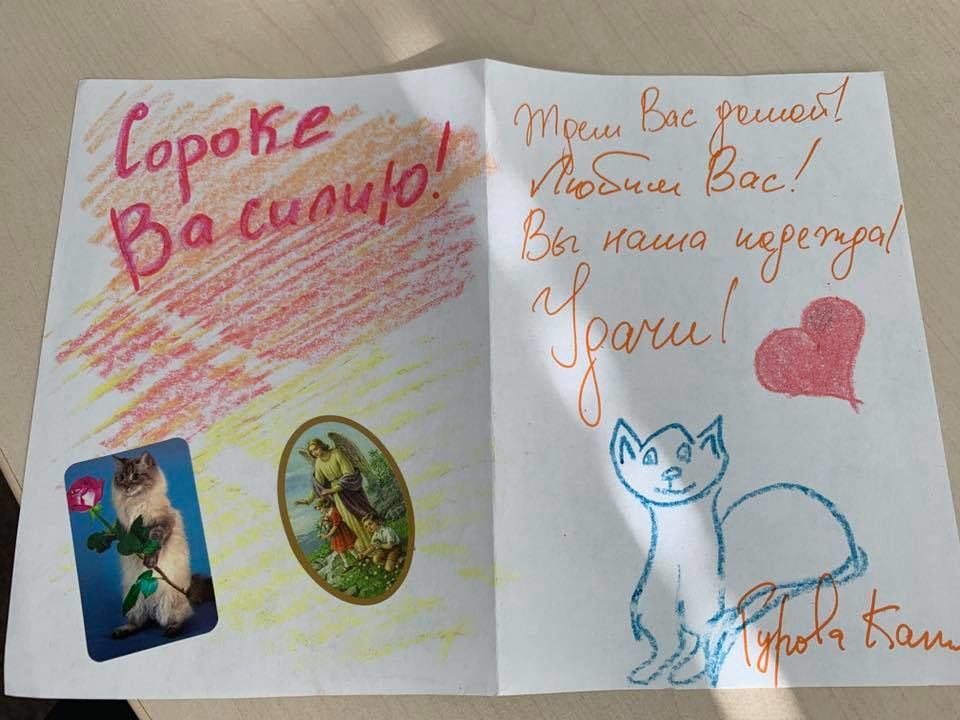 Сороке
Василию!
Ждем Вас домой!
Любим Вас!
Вы наша надежда!
Удачи!
Гурова